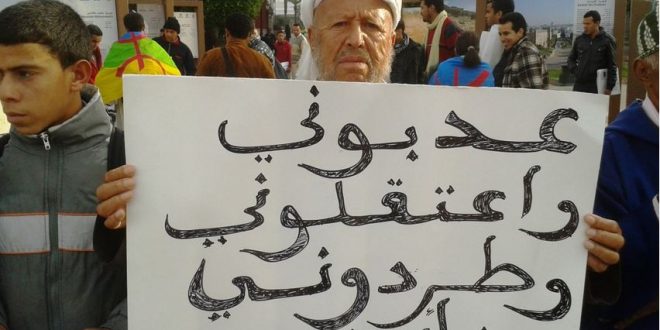 عدبوني
واعتقلوني
وطردوني